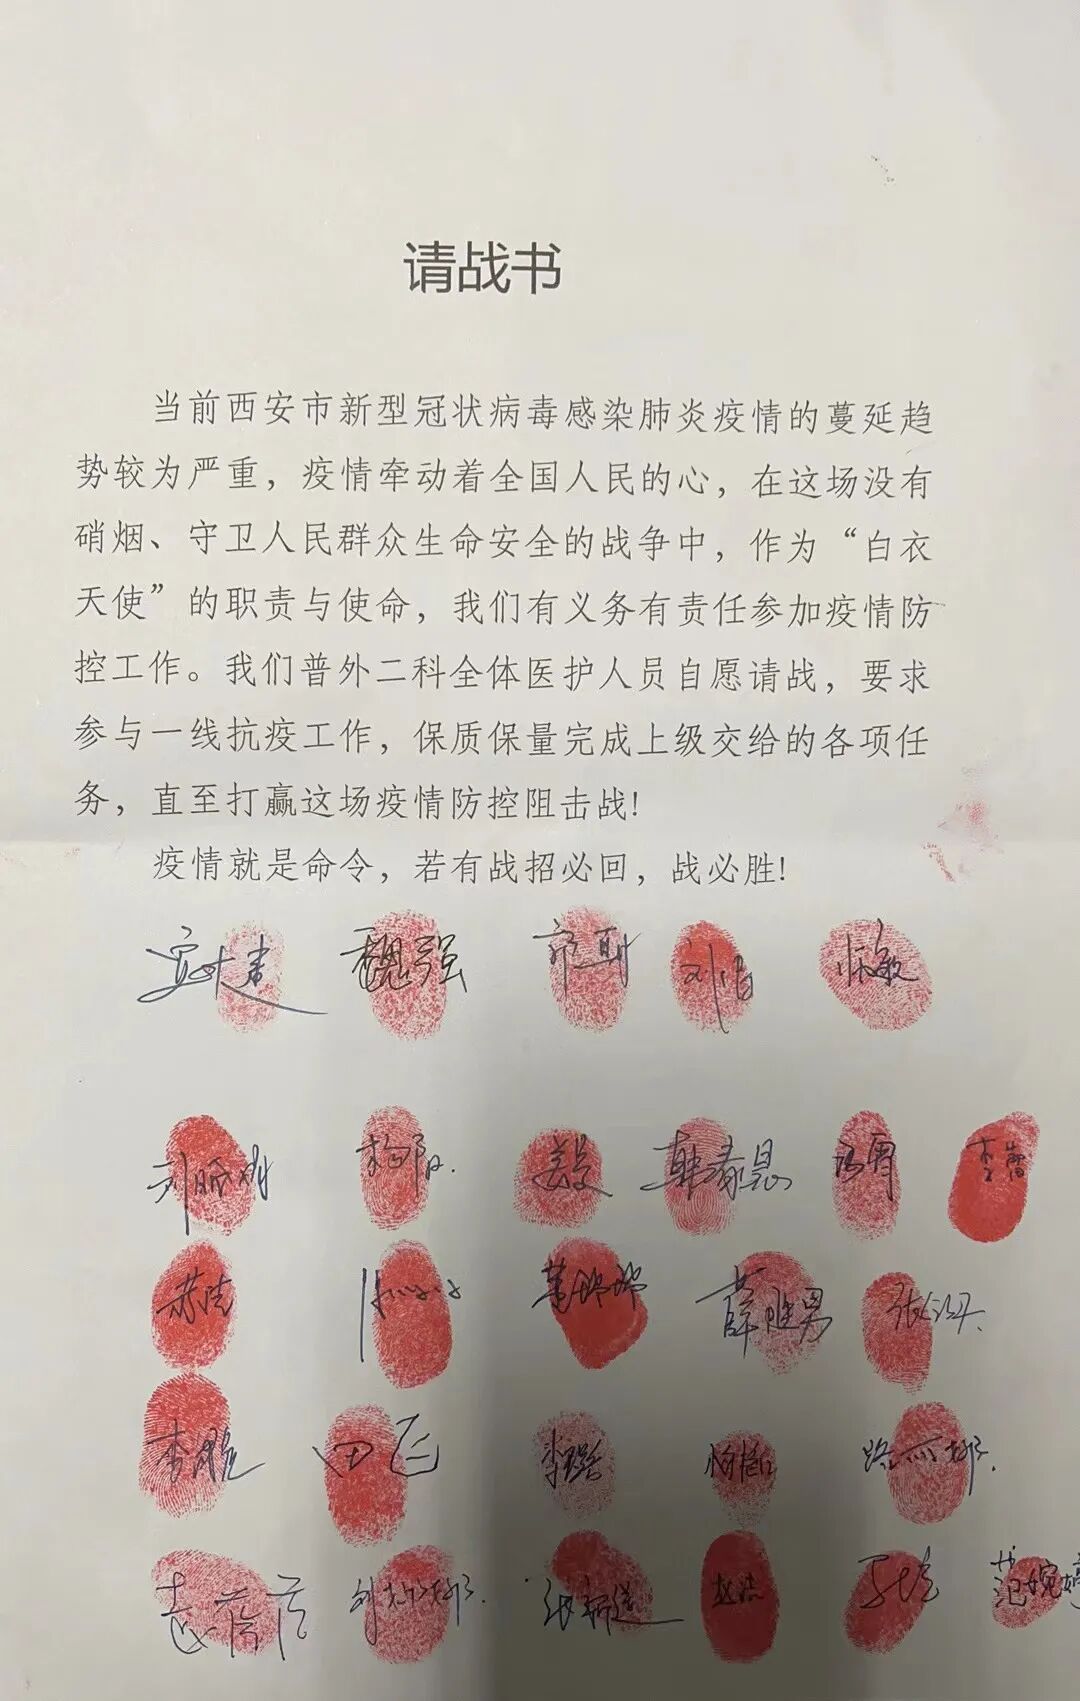 请战书
当前西安市新型冠状病毒感染肺炎疫情的蔓延趋
势较为严重，疫情牵动着全国人民的心，在这场没有
硝烟、守卫人民群众生命安全的战争中，作为“白衣
天使”的职责与使命，我们有义务有责任参加疫情防
控工作。我们普外二科全体医护人员自愿请战，要求
参与一线抗疫工作，保质保量完成上级交给的各项任
务，直至打赢这场疫情防控阻击战!
疫情就是命令，若有战招必回，战必胜!
魏强
杨阳 姜曼 韩春昱
苏洁 董娜娜 薛胜男
李鹏 田飞 路丽娜
袁蓓蓓 赵洁 范婉婷